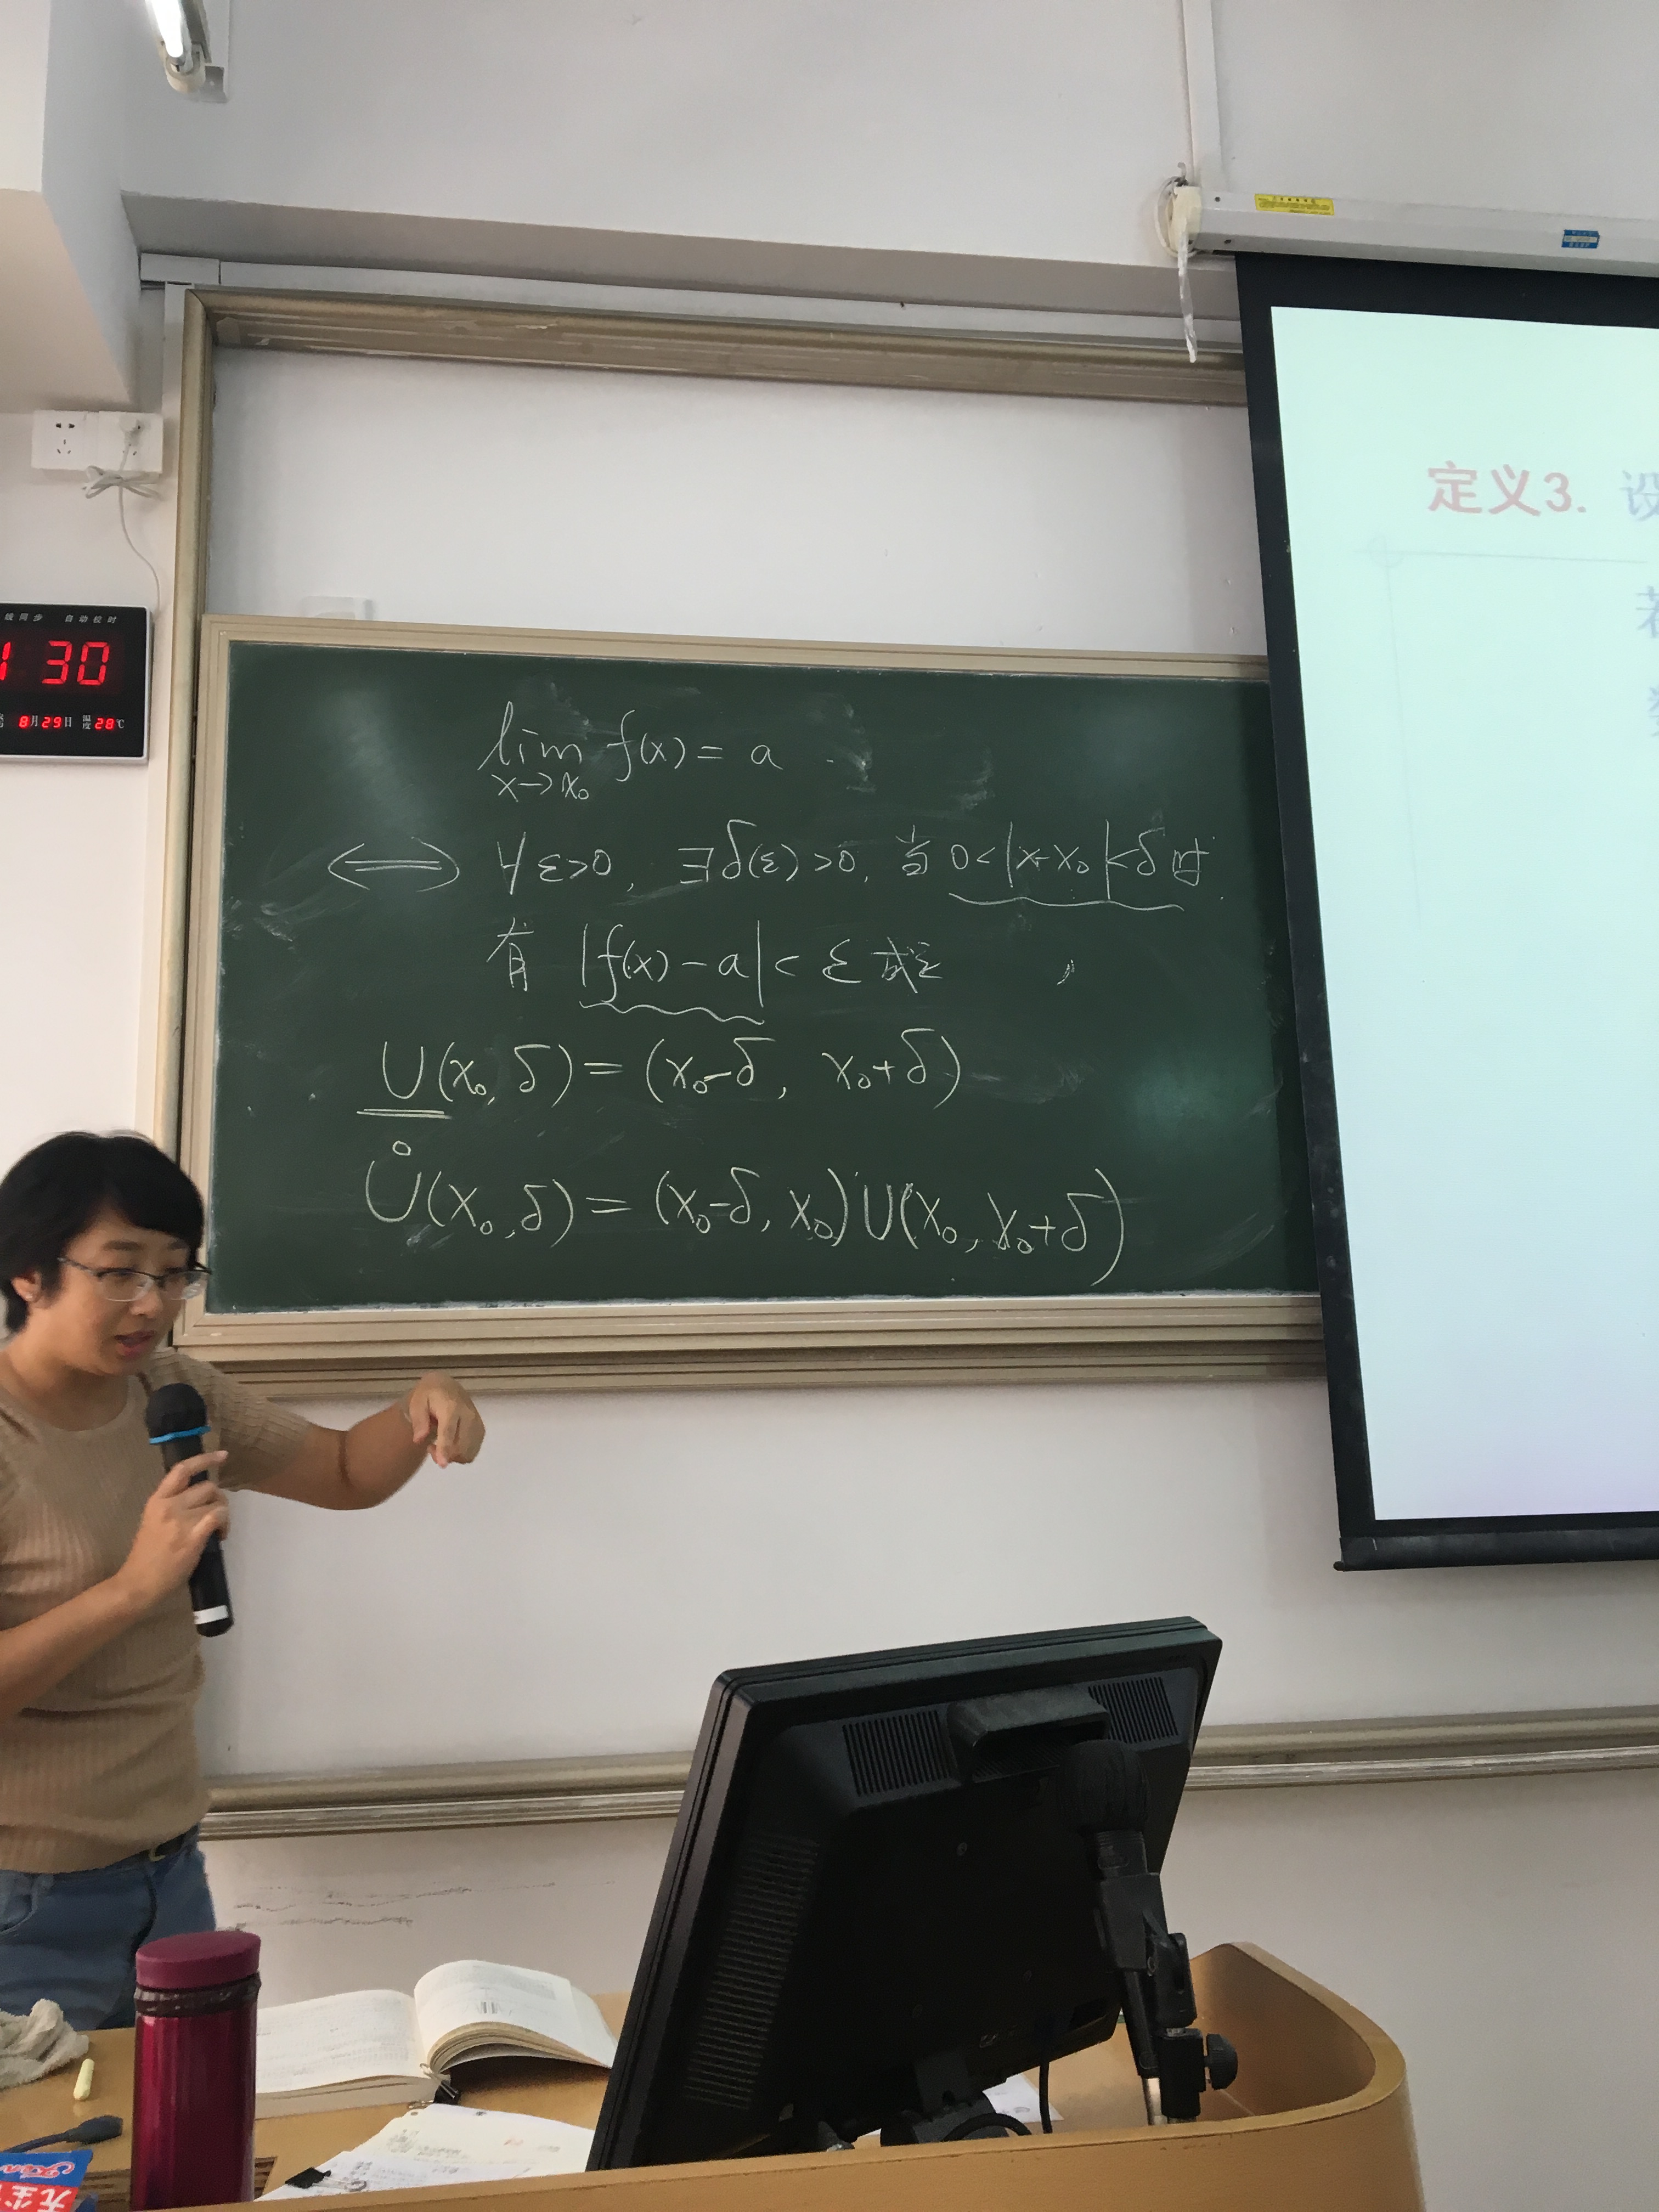 线同步 自动校时
30
8月29日 温度28℃
lim f(x) = a
x→x₀
⟺ ∀ε>0, ∃δ(ε)>0, 当 0<|x-x₀|<δ 时
有 |f(x)-a|<ε 成立,
U(x₀, δ) = (x₀-δ, x₀+δ)
Ů(x₀, δ) = (x₀-δ, x₀)∪(x₀, x₀+δ)
定义3. 设
若